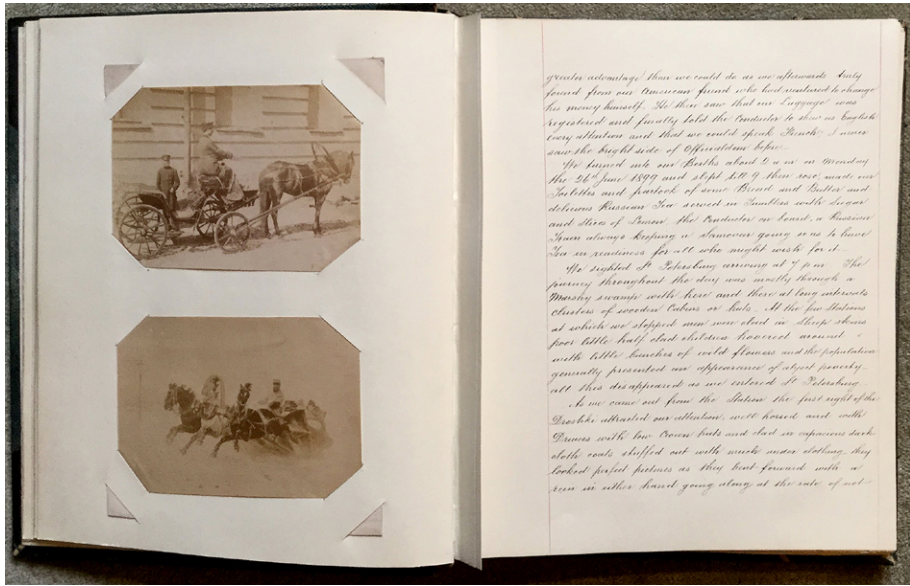 greater advantage than we could do as we afterwards truly
found from our American friend who had ventured to change
his money himself. He then saw that our Luggage was
registered and finally told the Conductor to show us English
every attention and that we could speak French; I never
saw the bright side of Officialdom before.
We turned into our Berths about 2 a m on Monday
the 26th June 1899 and slept till 9 then rose, made our
Toilettes and partook of some Bread and Butter and
delicious Russian Tea served in Tumblers with Sugar
and Slices of Lemon, the Conductor on board, a Russian
Train always keeping a Samovar going so as to have
Tea in readiness for all who might wish for it.
We sighted St Petersburg arriving at 7 p m. The
journey throughout the day was mostly through a
Marshy swamp with here and there at long intervals
clusters of wooden Cabins or huts. At the few Stations
at which we stopped men were clad in Sheep skins
poor little half clad children hovered around
with little bunches of wild flowers and the population
generally presented an appearance of abject poverty
all this disappeared as we entered St Petersburg.
As we came out from the Station the first sight of the
Droshke attracted our attention, well horsed and with
Drivers with low Crown hats and clad in capacious dark
cloth coats stuffed out with much under clothing they
looked perfect pictures as they bent forward with a
rein in either hand going along at the rate of not